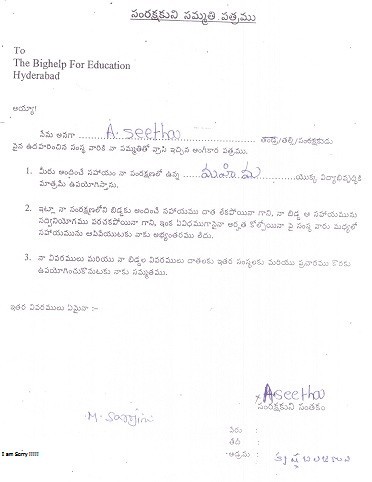 సంరక్షకుని సమ్మతి పత్రము
To
The Bighelp For Education
Hyderabad
అయ్యా!
నేను అనగా ........ A. Seetha ........ తండ్రి/తల్లి/సంరక్షకుడు
పైన ఉదహరించిన సంస్థ వారికి నా సమ్మతితో వ్రాసి ఇచ్చిన అంగీకార పత్రము.
1. మీరు అందించే సహాయం నా సంరక్షణలో ఉన్న ...... మహిమ ...... యొక్క విద్యాభివృద్ధికి
మాత్రమే ఉపయోగిస్తాను.
2. ఇట్లా నా సంరక్షణలోని బిడ్డకు అందించే సహాయము దాత లేకపోయినా గాని, నా బిడ్డ ఆ సహాయమును
సద్వినియోగము పరచకపోయినా గాని, ఇంక ఏవిధముగానైనా అర్హత కోల్పోయినా పై సంస్థ వారు మధ్యలో
సహాయమును ఆపివేయుటకు నాకు అభ్యంతరము లేదు.
3. నా వివరములు మరియు నా బిడ్డల వివరములు దాతలకు ఇతర సంస్థలకు మరియు ప్రచారము కొరకు
ఉపయోగించుకొనుటకు నాకు సమ్మతము.
ఇతర వివరములు ఏమైనా :-
A Seetha
సంరక్షకుని సంతకం
M. Sarojini
పేరు :
తేదీ :
అడ్రసు :
I am Sorry !!!!!